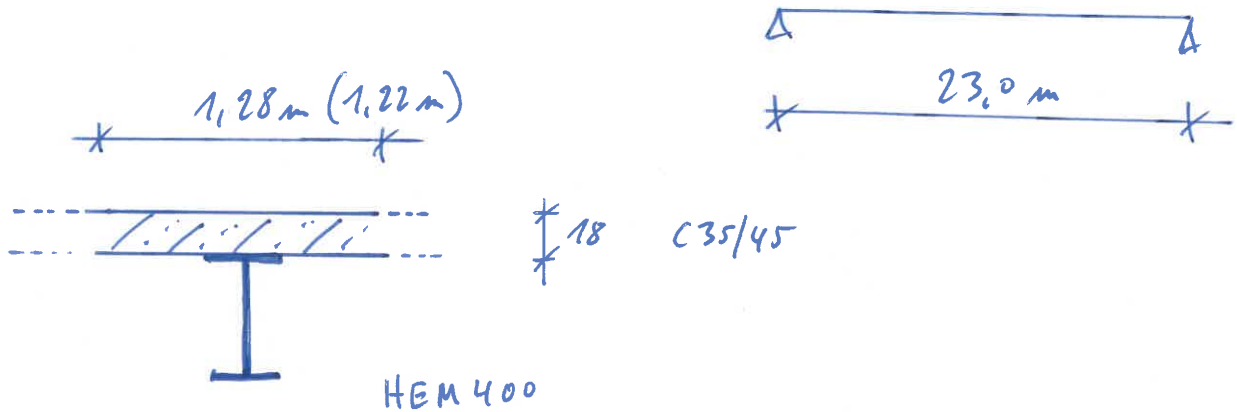 1,28 m (1,22 m)
23,0 m
18 C 35/45
HEM 400